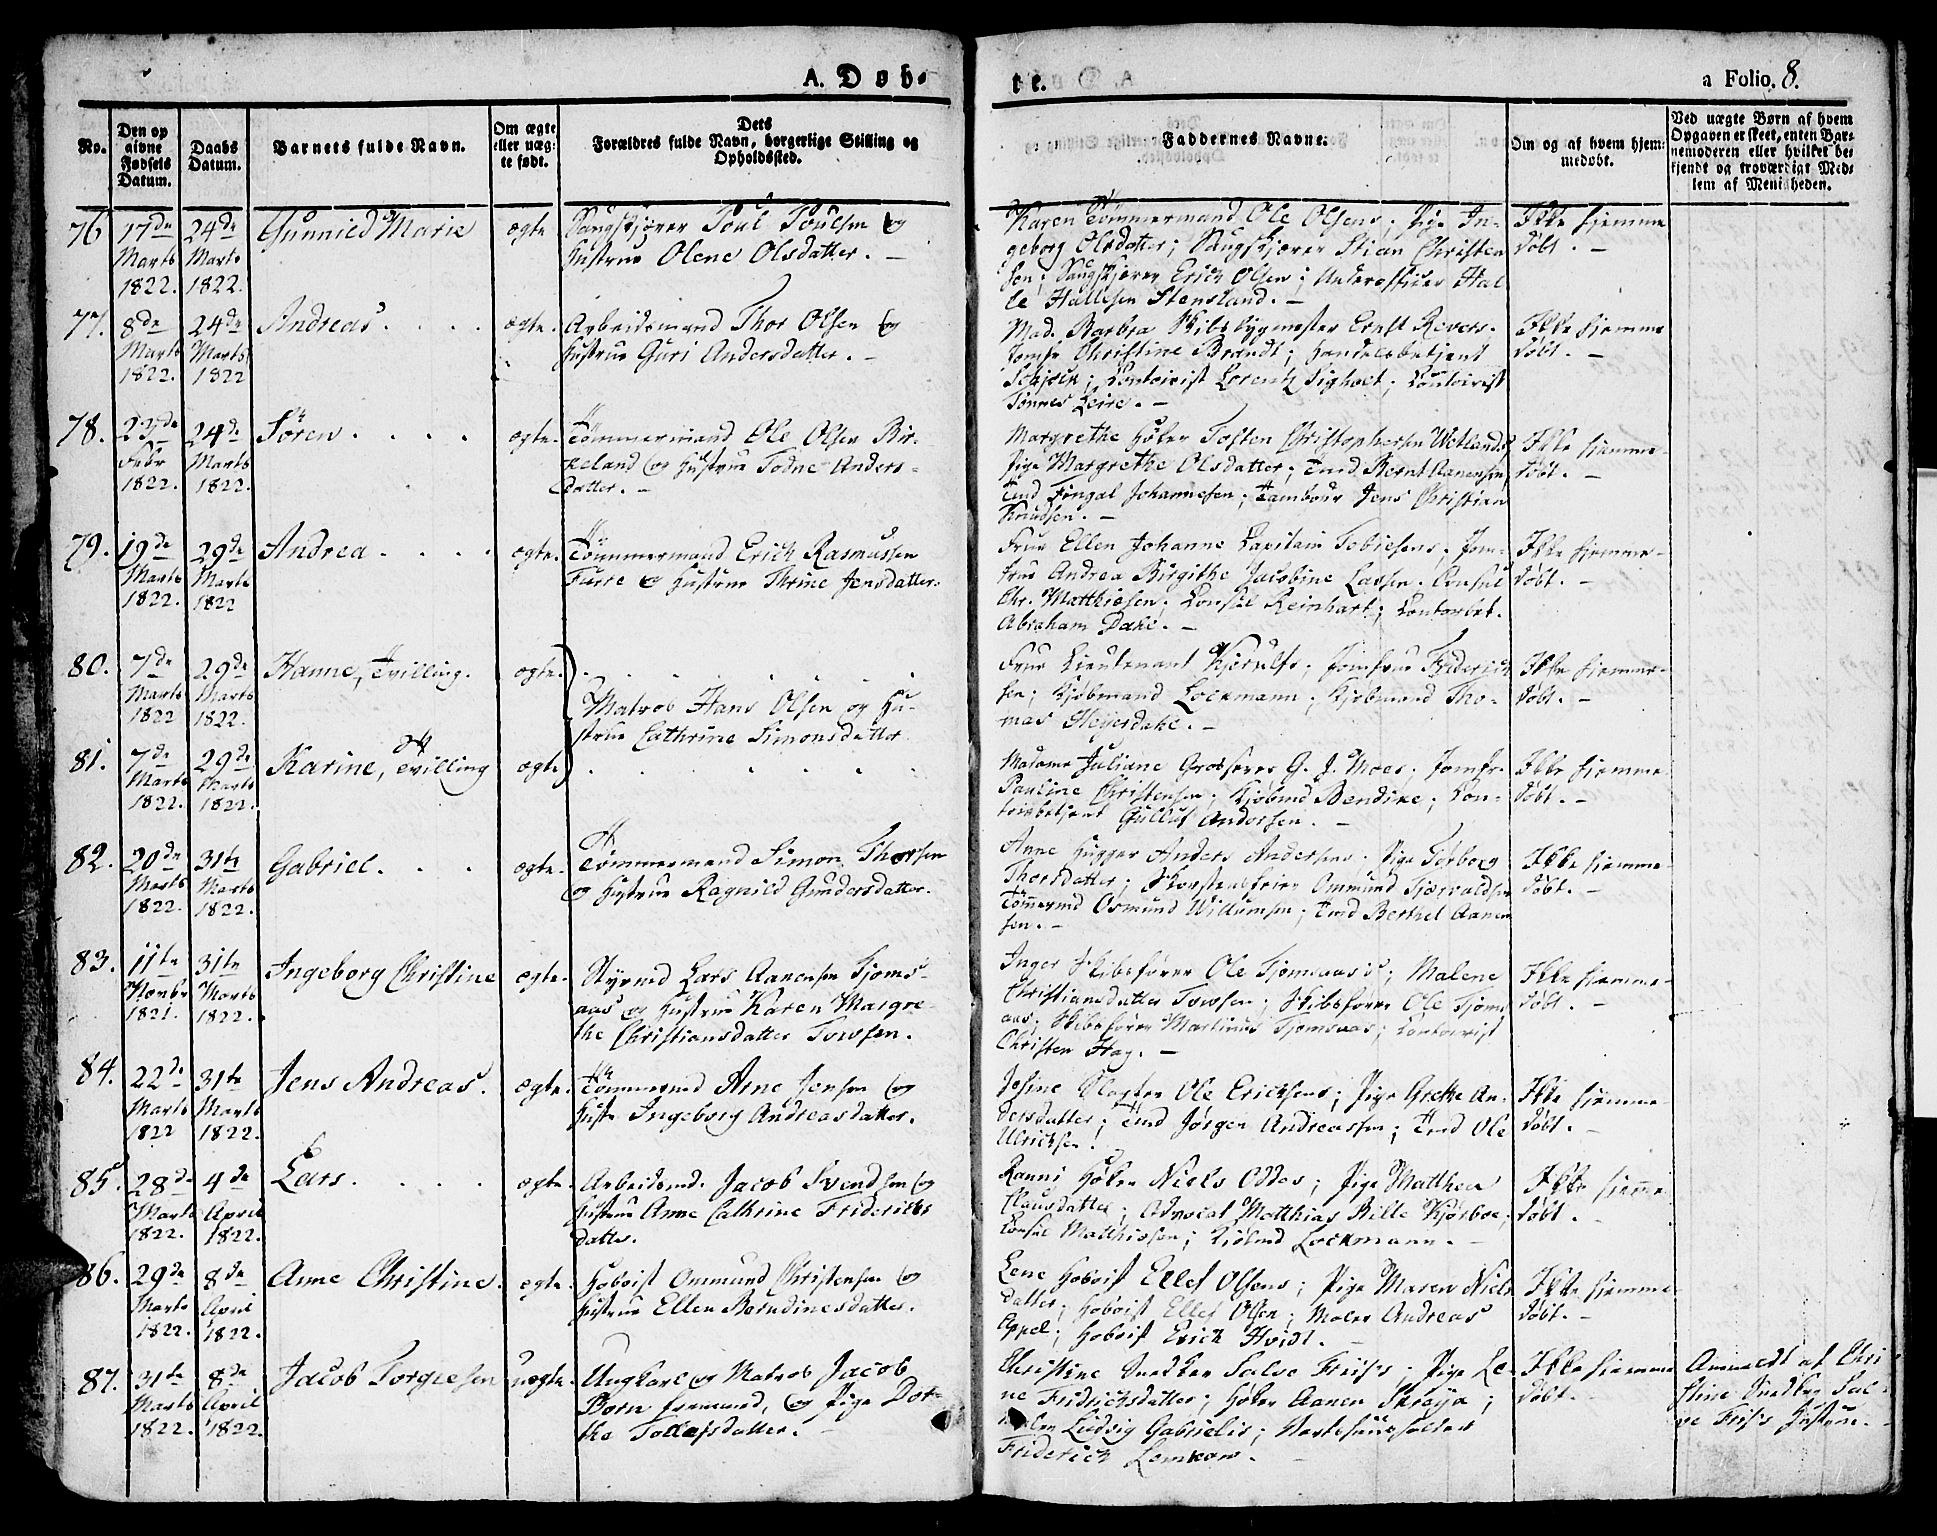 A. Døb-
te.
a Folio. 8.
No.
Den op
givne
Fødsels
Datum.
Daabs
Datum.
Barnets fulde Navn.
Om ægte
eller uæg-
te født.
Dets
Forældres fulde Navn, borgerlige Stilling og
Opholdssted.
Faddernes Navne.
Om og af hvem hjem-
medøbt.
Ved uægte Børn af hvem
Opgaven er skeet, enten Bar-
nemoderen eller hvilket be-
kjendt og troværdigt Med-
lem af Menigheden.
76 17de Marts 1822. 24de Marts 1822. Gunnild Marie ægte
Saugskjærer Poul Poulsen og
Hustrue Olene Olsdatter. -
Karen Tømmermand Ole Olsens; Pige In-
geborg Olsdatter; Saugskjærer Stian Christen
sen; Saugskjærer Erich Olsen; Underofficer Hal
le Hallesen Stensland. -
Ikke hjemme
døbt. -
77. 8de Marts 1822. 24de Marts 1822 Andreas. ægte.
Arbeidsmand Thor Olsen og
Hustrue Guri Andersdatter. -
Mad. Barbra Skibsbygmester Ernst Revers.
Jomfr Christine Brandt; Handelsbetjent
; Contoirist Lorentz Sigholt; Contoirist
Tønnes Leire. -
Ikke hjemme
døbt. -
78. 27de Febr 1822. 24de Marts 1822. Sören. ægte.
Tømmermand Ole Olsen Bir-
keland og Hustrue Todne Anders-
datter. -
Margrethe Høker Tosten Christophersen Wetlands
Pige Margrethe Olsdatter; Tmd Bernt Aanensen,
Tmd Fingal Johannesen; Tambour Jens Christian
Knudsen. -
Ikke hjemme-
døbt. -
79. 19de Marts 1822. 29de Marts 1822 Andrea. ægte.
Tømmermand Erich Rasmussen
Furre og Hustrue Thrine Jensdatter.
Frue Ellen Johanne Capitain Tobiesens; Jom-
frue Andrea Birgithe Jacobine Lassen. Consul
Chr. Matthiesen; Consul Reinhart; Contorbet.
Abraham Dahl. -
Ikke hjemme-
døbt. -
80. 7de Marts 1822 29de Marts 1822. Hanne, Tvilling. ægte.
Matros Hans Olsen og Hu-
strue Cathrine Simonsdatter
Frue Lieutenant Kjerulfs; Jomfrue Friderich
sen; Kjøbmand Lockmann; Kjøbmand Tho-
mas Heyerdahl. -
Ikke hjemme-
døbt. -
81. 7de Marts 1822. 29de Marts 1822. Karine, Tvilling ægte
Madame Juliane Grosserer G. J. Moes; Jomfr.
Pauline Christensen; Kjøbmd Bendixe; Con-
toirbetjent Gulluf Andersen. -
Ikke hjemme-
døbt. -
82. 20de Marts 1822. 31te Marts 1822. Gabriel. ægte.
Tømmermand Simon Thorsen
og Hustrue Ragnild Gundersdatter.
Anne Hugger Anders Andersens. Pige Torborg
Thorsdatter; Skorstensfeier Ommund Tjærvaldsen
Tömermd Osmund Willumsen; Tmd Berthel Aanen
sen. -
Ikke hjemme-
døbt. -
83. 11te Novbr 1821. 31te Marts 1822. Ingeborg Christine ægte.
Styrmd Lars Aanensen Tjoms-
aas og Hustrue Karen Margre-
the Christiansdatter Towsen.
Inger Skibsfører Ole Tjomsaas's; Malene
Christiansdatter Towsen; Skibsfører Ole Tjoms
aas; Skibsfører Martinus Tjomsaas; Contoirist
Christen Hag. -
Ikke hjemme-
døbt. -
84. 22de Marts 1822 31te Marts 1822. Jens Andreas. ægte.
Tømmermd Arne Jensen og
Hustr Ingeborg Andreasdatter.
Josine Slagter Ole Ericksens; Pige Grethe An-
dersdatter; Tmd Jørgen Andreassen; Tmd Ole
Ulrichsen.
Ikke hjemme-
døbt. -
85. 28de Marts 1822. 4de April 1822. Lars. ægte.
Arbeidsmd. Jacob Svendsen og
Hustrue Anne Cathrine Friderichs
datter.
Ranni Høker Niels Oddes; Pige Matthea
Clausdatter; Advocat Matthias Bille Kjørboe;
Consul Matthiesen; Kjøbmd Lockmann. -
Ikke hjemme-
døbt. -
86. 29de Marts 1822. 8de April 1822. Anne Christine. ægte.
Hoboist Ommund Christensen og
Hustrue Ellen Berndinesdatter.
Lene Hoboist Ellef Olsens; Pige Maren Niels
datter; Hoboist Ellef Olsen; Maler Andreas
Appel; Hoboist Erich Hvidt. -
Ikke hjemme-
døbt. -
87. 31te Marts 1822. 8de April 1822. Jacob Torgiesen uægte.
Ungkarl og Matros Jacob
Børn fremmed, og Pige Dor-
the Tollefsdatter. -
Christine Snedker Salve Friis's; Pige Le-
ne Fridrichsdatter; Høker Aanen Skreya;
Ludvig Gabrielis;
Friderich Lemkow. -
Ikke hjemme
døbt.
Anmeldt af Chri
stine Snedker Sal-
ve Friis's Hustrue. -